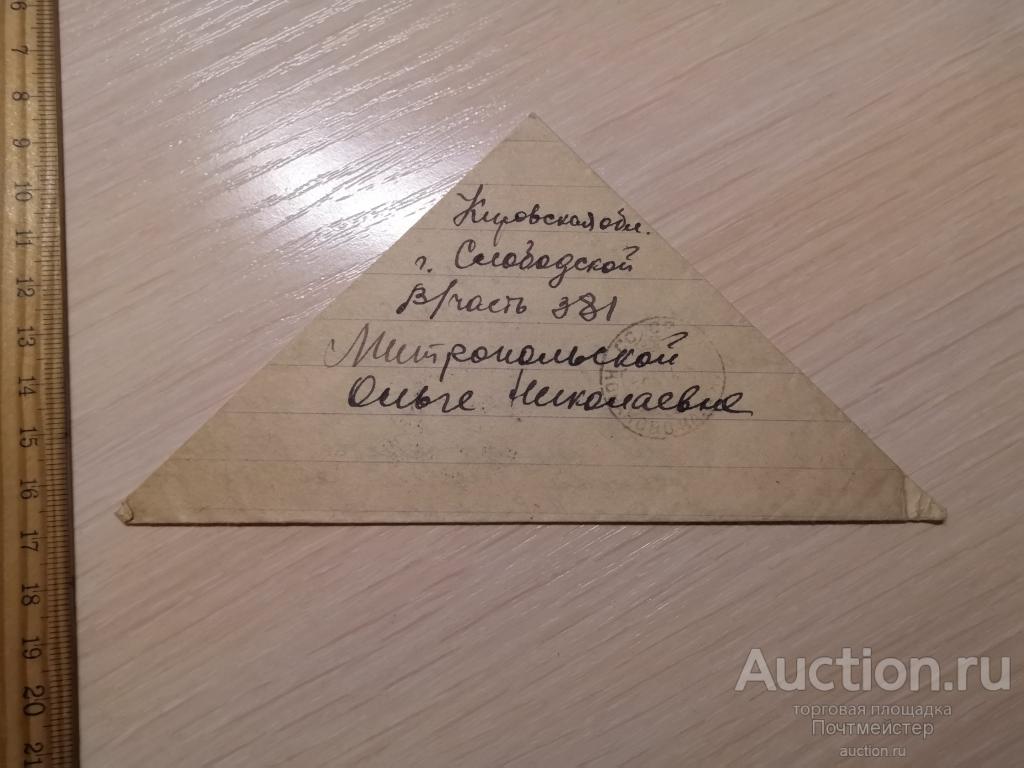 Кировская обл.
г. Слободской
В/часть 381
Митропольской
Ольге Николаевне
6
7
8
9
10
11
12
13
14
15
16
17
18
19
20
21
Auction.ru
торговая площадка
Почтмейстер
auction.ru